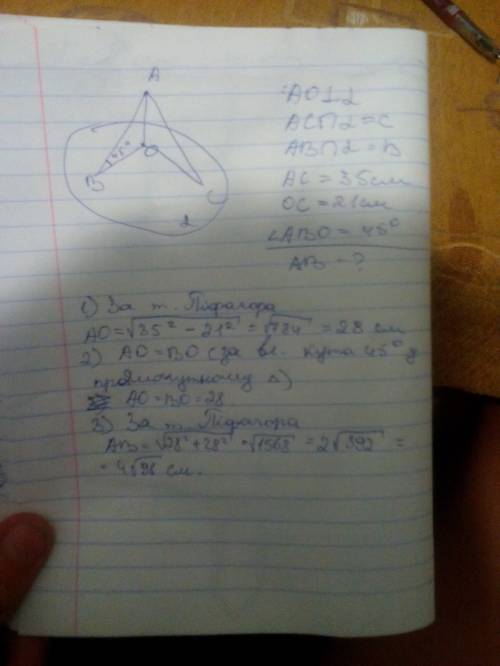 A
45°
O
B
C
α
AO⊥α
AC∩α=C
AB∩α=B
AC=35см
OC=21см
∠ABO=45°
AB-?
1) За т. Піфагора
AO=√35²-21²=√784=28 см
2) AO=BO (за вл. кута 45° у
прямокутному △)
AO=BO=28
3) За т. Піфагора
AB=√28²+28²=√1568=2√392=
=4√98 см.